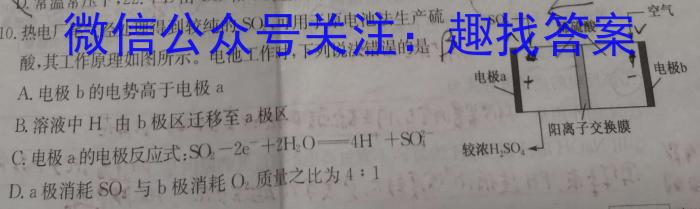 D. 常温常压下, 22.
10. 热电厂 得到较纯的 SO 用 电池法生产硫
微信公众号关注：趣找答案
酸,其工作原理如图所示。电池工作时,下列说法错误的是
A. 电极 b 的电势高于电极 a
B. 溶液中 H⁺ 由 b 极区迁移至 a 极区
C. 电极 a 的电极反应式:SO₂-2e⁻+2H₂O══4H⁺+SO₄²⁻
D. a 极消耗 SO₂ 与 b 极消耗 O₂ 质量之比为 4∶1
SO
空气
硫酸
电极a
电极b
阳离子交换膜
较浓H₂SO₄